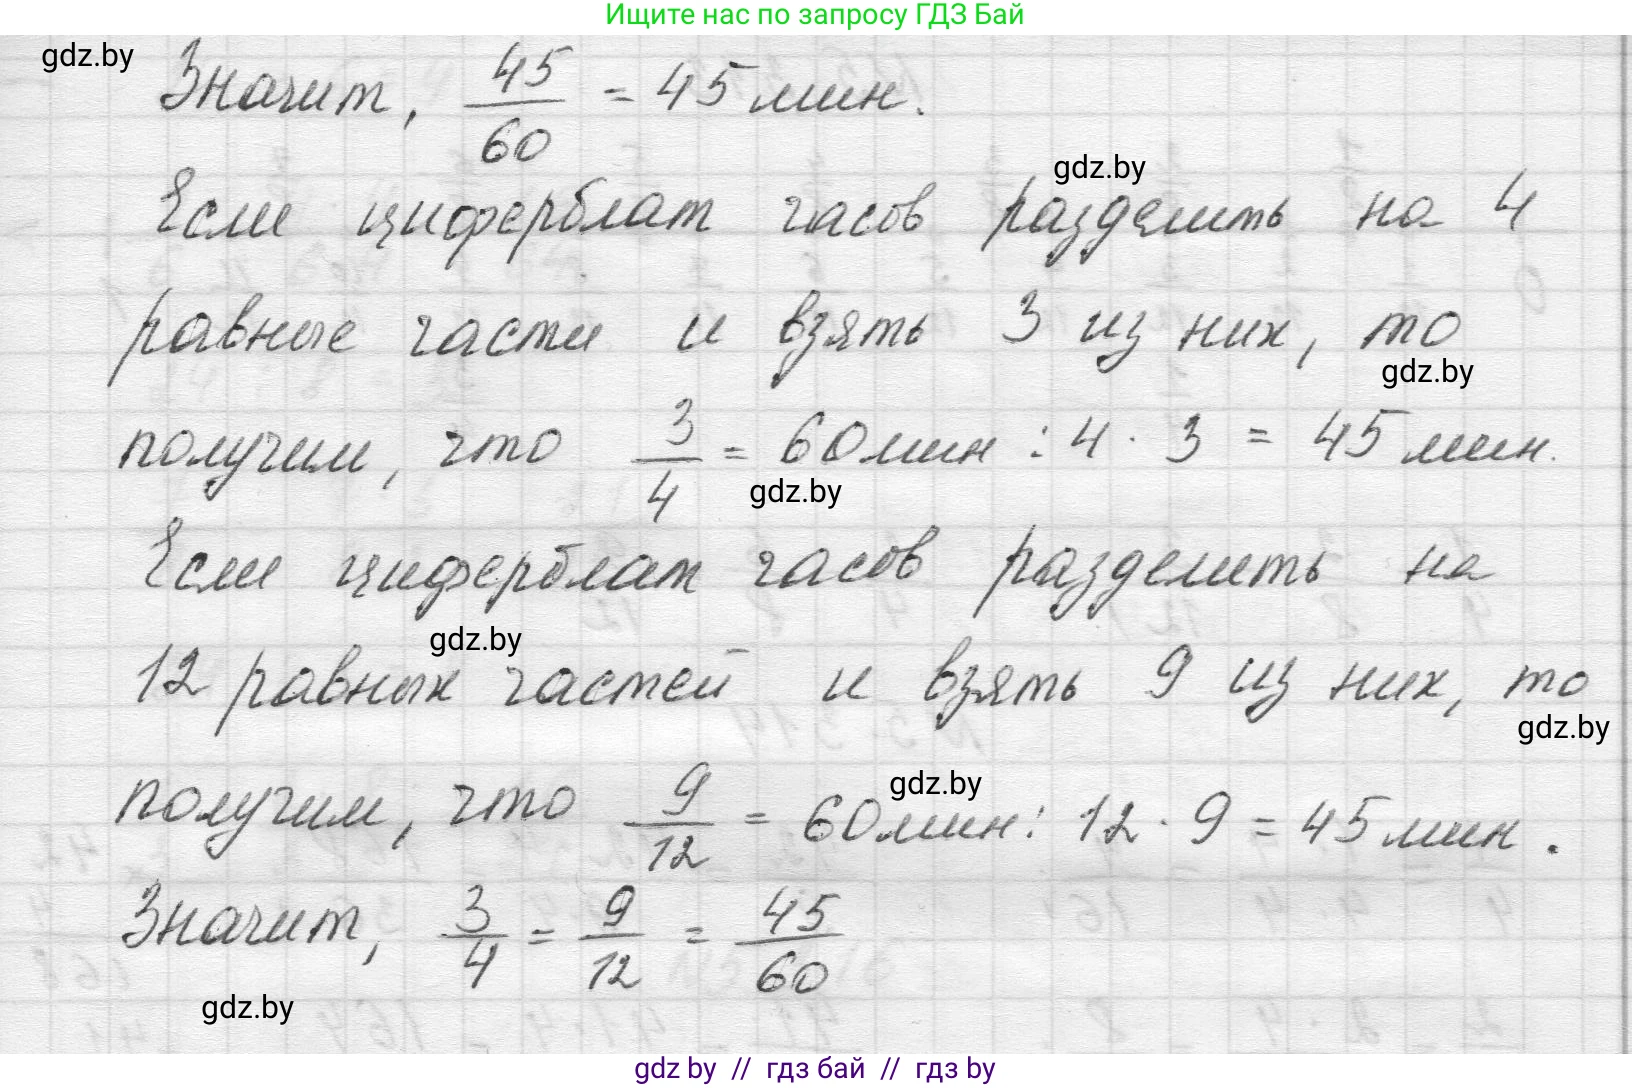 Ищите нас по запросу ГДЗ Бай
gdz.by
Значит, 45/60 = 45 мин.
gdz.by
Если циферблат часов разделить на 4
равные части и взять 3 из них, то
gdz.by
получим, что 3/4 = 60 мин : 4 · 3 = 45 мин.
gdz.by
Если циферблат часов разделить на
gdz.by
12 равных частей и взять 9 из них, то
gdz.by
gdz.by
получим, что 9/12 = 60 мин : 12 · 9 = 45 мин.
Значит, 3/4 = 9/12 = 45/60
gdz.by
gdz.by // гдз бай // gdz.by